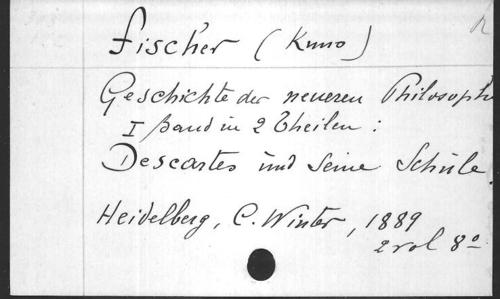 Fischer (Kuno)
Geschichte der neueren Philosoph
I Band in 2 Theilen :
Descartes und seine Schule.
Heidelberg, C. Winter, 1889
2 vol 8o